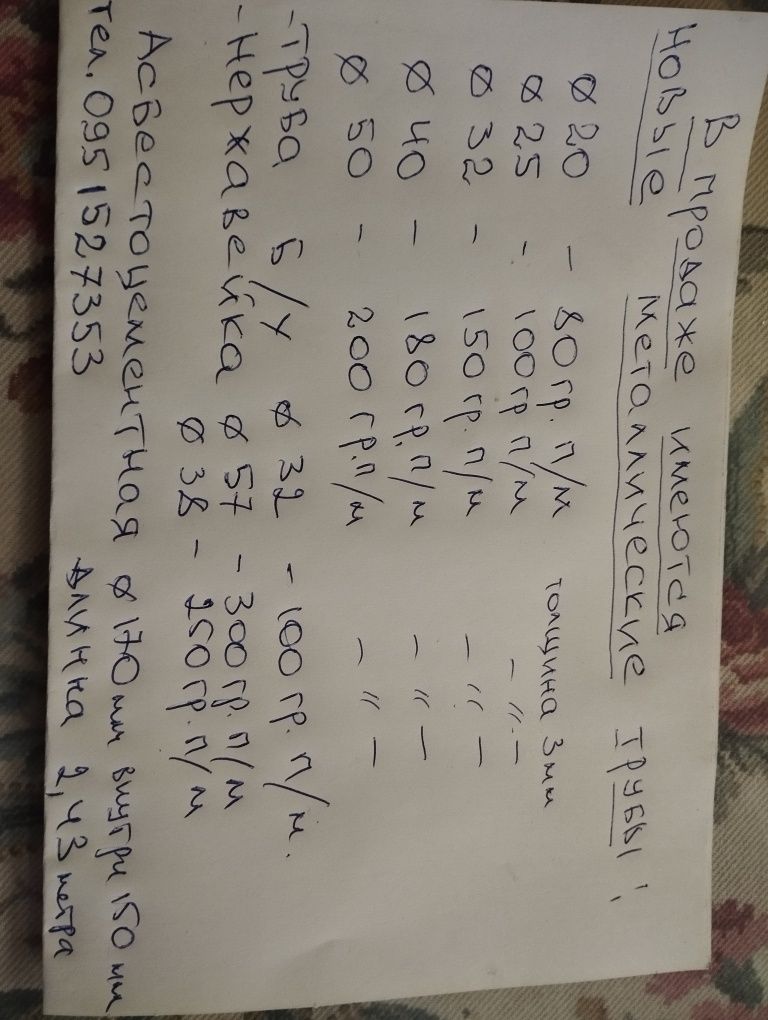 В продаже имеются
Новые металлические трубы:
⌀ 20 – 80 гр. п/м толщина 3 мм
⌀ 25 - 100 гр п/м –〃 –
⌀ 32 – 150 гр. п/м – 〃 –
⌀ 40 – 180 гр. п/м – 〃 –
⌀ 50 – 200 гр. п/м – 〃 –
-Труба Б/У ⌀ 32 – 100 гр. п/м.
-Нержавейка ⌀ 57 – 300 гр. п/м
⌀ 38 – 250 гр. п/м
Асбестоцементная ⌀ 170 мм внутри 150 мм
длинна 2,43 метра
тел. 095 1527353